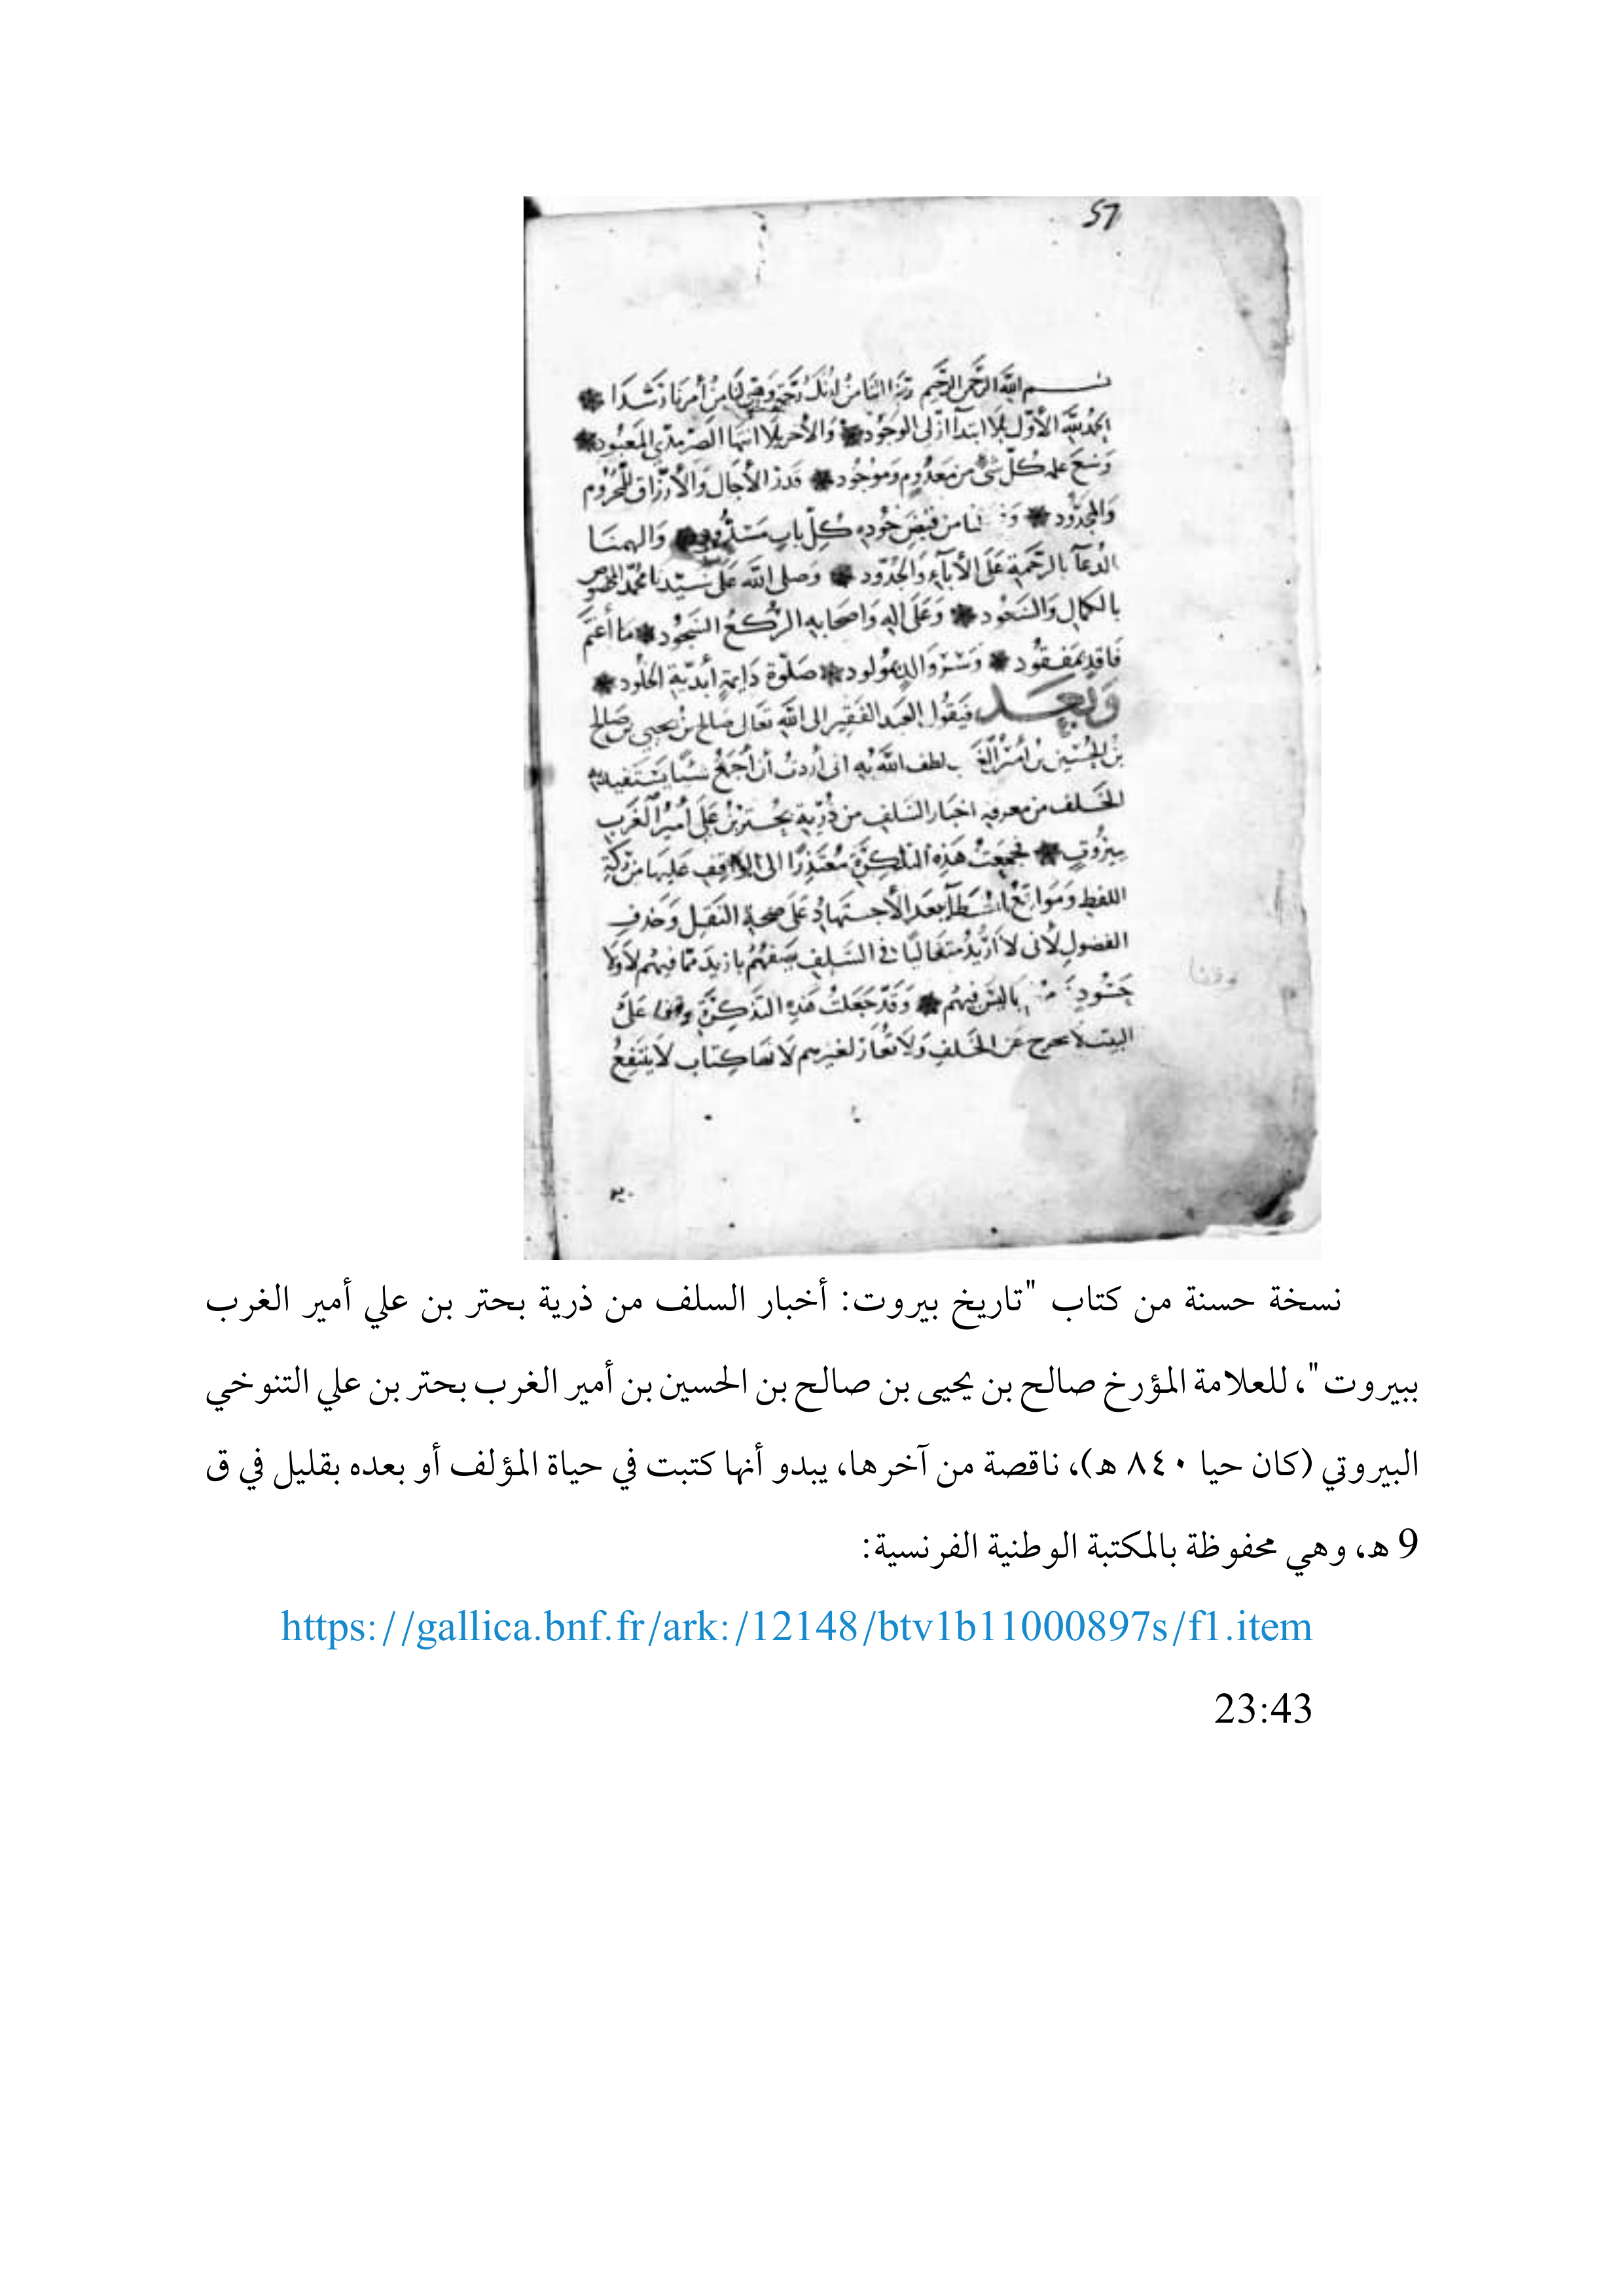 57
بسم الله الرحمن الرحيم ربنا اتنا من لدنك رحمة وهي لنا من أمرنا رشدا
الحمد لله الأول بلا ابتدآ ازلي الوجود والأخر بلا انتها المعبود
وسع علمه كل شئ من معدوم وموجود قدر الأجال والأرزاق للمحروم
والمجدود من فيض جوده كل باب مسدود والهمنا
الدعآ بالرحمة على الأبآء والجدود وصلى الله على سيدنا محمد المخصوص
بالكمال والسعود وعلى اله واصحابه الركع السجود ما أغم
فاقد بمفقود وسر والد بمولود صلوة دايمة أبدية الخلود
وبعد فيقول العبد الفقير الى الله تعالى صالح بن يحيى بن صالح
بن الحسين بن أمير لطف الله به انى أردت أن أجمع شيئا يستفيد به
الخلف من معرفه اخبار السلف من ذرية بحتر بن على أمير الغرب
ببيروت فجمعت هذه التذكرة معتذرا الى الواقف عليها من ركة
اللفظ ومواقع بعد الأجتهاد على صحة النقل وحذف
الفضول لأنى لا أريد متغاليا في السلف يصفهم بازيد مما فيهم ولا
بما ليس فيهم وقد جعلت هذه التذكرة وقفا على
البيت لا تخرج عن الخلف ولا تعار لغيرهم لانها كتاب لا ينتفع
نسخة حسنة من كتاب "تاريخ بيروت: أخبار السلف من ذرية بحتر بن علي أمير الغرب
ببيروت"، للعلامة المؤرخ صالح بن يحيى بن صالح بن الحسين بن أمير الغرب بحتر بن علي التنوخي
البيروتي (كان حيا ٨٤٠ هـ)، ناقصة من آخرها، يبدو أنها كتبت في حياة المؤلف أو بعده بقليل في ق
9 هـ، وهي محفوظة بالمكتبة الوطنية الفرنسية:
https://gallica.bnf.fr/ark:/12148/btv1b11000897s/f1.item
23:43